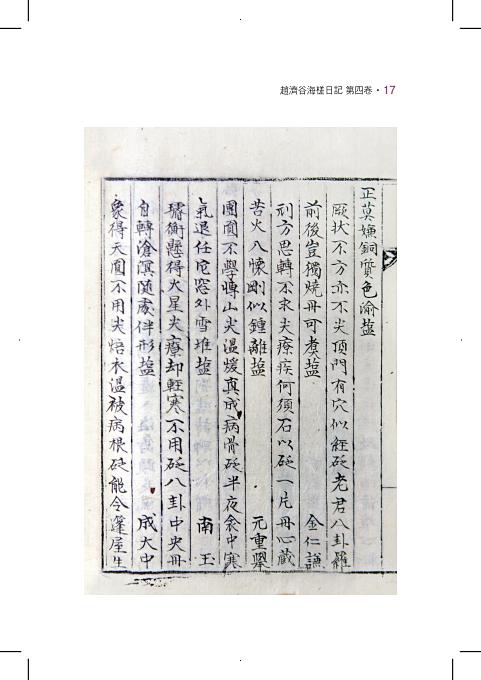 趙濟谷海槎日記 第四卷 • 17
正莫嫌銅質色渝盐
厥状不方亦不尖頂門有穴似經砭老君八卦羅
前後豈獨燒丹可煑盐 金仁謙
刓方思轉不求尖療疾何須石以砭一片丹心藏
苦火八懷剛似鍾離盐 元重擧
團圓不學愽山尖温煖真成病骨砭半夜衾中寒
氣退任他窓外雪堆盐 南玉
璿衡懸得火星尖療却輕寒不用砭八卦中央丹
自轉滄溟随處伴形盐 成大中
象得天圓不用尖焙衣温被病根砭能令蓬屋生